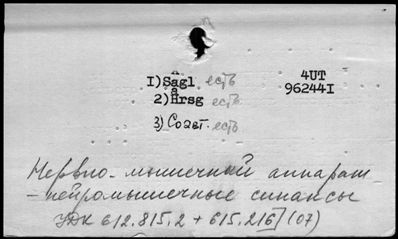 1) Sagl есть
4UT
96244I
2) Hrsg есть
3) Соавт. есть
Нервно-мышечный аппарат
- нейромышечные синапсы
УДК 612.815.2 + 615.216 (07)